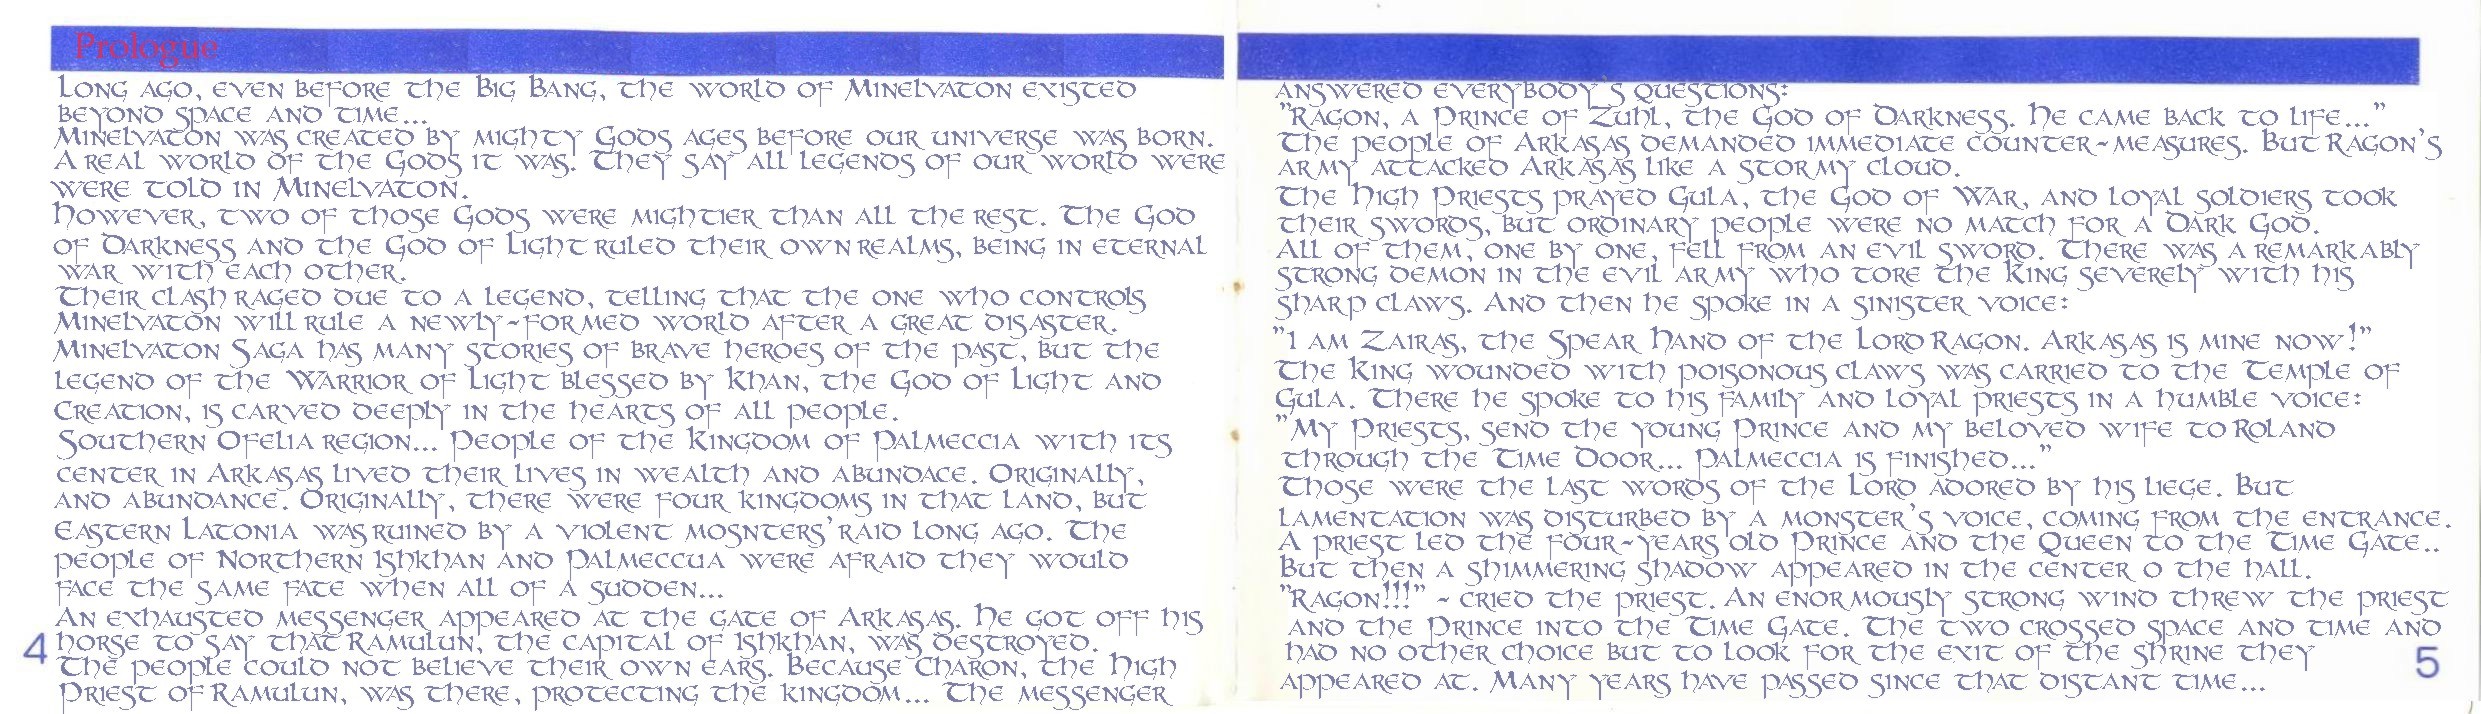 Prologue
Long ago, even before the Big Bang, the world of Minelvaton existed
beyond space and time...
Minelvaton was created by mighty Gods ages before our universe was born.
A real world of the Gods it was. They say all legends of our world were
were told in Minelvaton.
However, two of those Gods were mightier than all the rest. The God
of Darkness and the God of Light ruled their own realms, being in eternal
war with each other.
Their clash raged due to a legend, telling that the one who controls
Minelvaton will rule a newly-formed world after a great disaster.
Minelvaton Saga has many stories of brave heroes of the past, but the
legend of the Warrior of Light blessed by Khan, the God of Light and
Creation, is carved deeply in the hearts of all people.
Southern Ofelia region... People of the Kingdom of Palmeccia with its
center in Arkasas lived their lives in wealth and abundace. Originally,
and abundance. Originally, there were four kingdoms in that land, but
Eastern Latonia was ruined by a violent mosnters' raid long ago. The
people of Northern Ishkhan and Palmeccua were afraid they would
face the same fate when all of a sudden...
An exhausted messenger appeared at the gate of Arkasas. He got off his
horse to say that Ramulun, the capital of Ishkhan, was destroyed.
The people could not believe their own ears. Because Charon, the High
Priest of Ramulun, was there, protecting the kingdom... The messenger
4
answered everybody's questions:
"Ragon, a Prince of Zuhl, the God of Darkness. He came back to life..."
The people of Arkasas demanded immediate counter-measures. But Ragon's
army attacked Arkasas like a stormy cloud.
The High Priests prayed Gula, the God of War, and loyal soldiers took
their swords, but ordinary people were no match for a Dark God.
All of them, one by one, fell from an evil sword. There was a remarkably
strong demon in the evil army who tore the King severely with his
sharp claws. And then he spoke in a sinister voice:
"I am Zairas, the Spear Hand of the Lord Ragon. Arkasas is mine now!"
The King wounded with poisonous claws was carried to the Temple of
Gula. There he spoke to his family and loyal priests in a humble voice:
"My Priests, send the young Prince and my beloved wife to Roland
through the Time Door... Palmeccia is finished..."
Those were the last words of the Lord adored by his liege. But
lamentation was disturbed by a monster's voice, coming from the entrance.
A priest led the four-years old Prince and the Queen to the Time Gate..
But then a shimmering shadow appeared in the center o the hall.
"Ragon!!!" - cried the priest. An enormously strong wind threw the priest
and the Prince into the Time Gate. The two crossed space and time and
had no other choice but to look for the exit of the shrine they
appeared at. Many years have passed since that distant time...
5